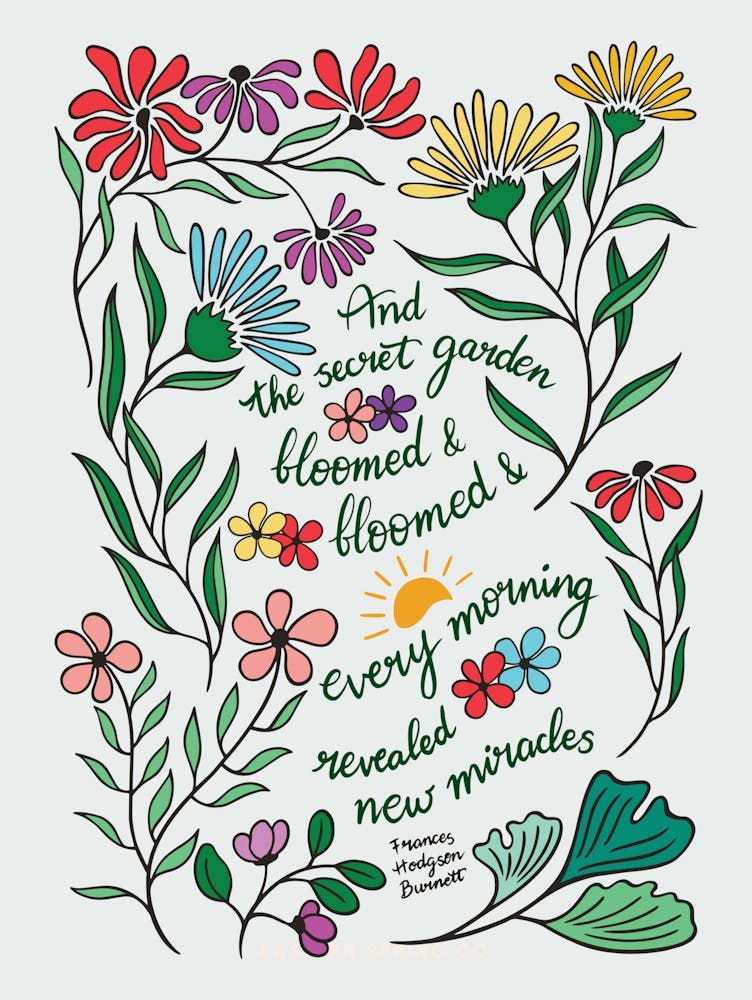 And
the secret garden
bloomed &
bloomed &
every morning
revealed
new miracles
Frances
Hodgson
Burnett